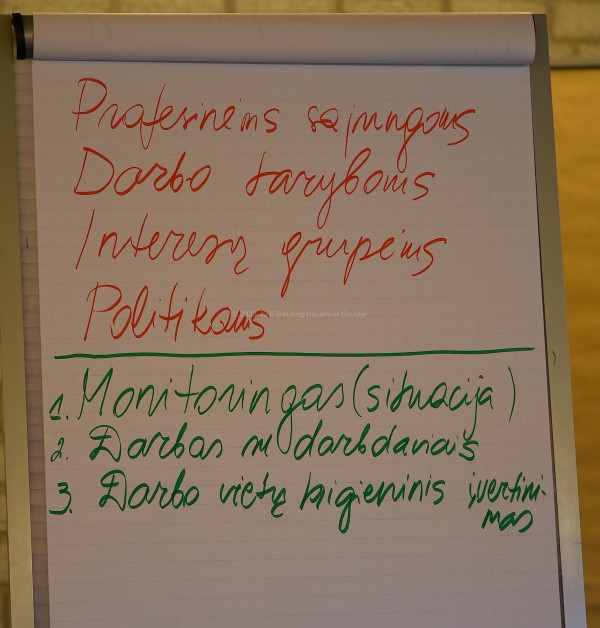 Profesinėms sąjungoms
Darbo taryboms
Interesų grupėms
Politikams
1. Monitoringas (situacija)
2. Darbas su darbdaviais
3. Darbo vietų higieninis įvertini-
mas